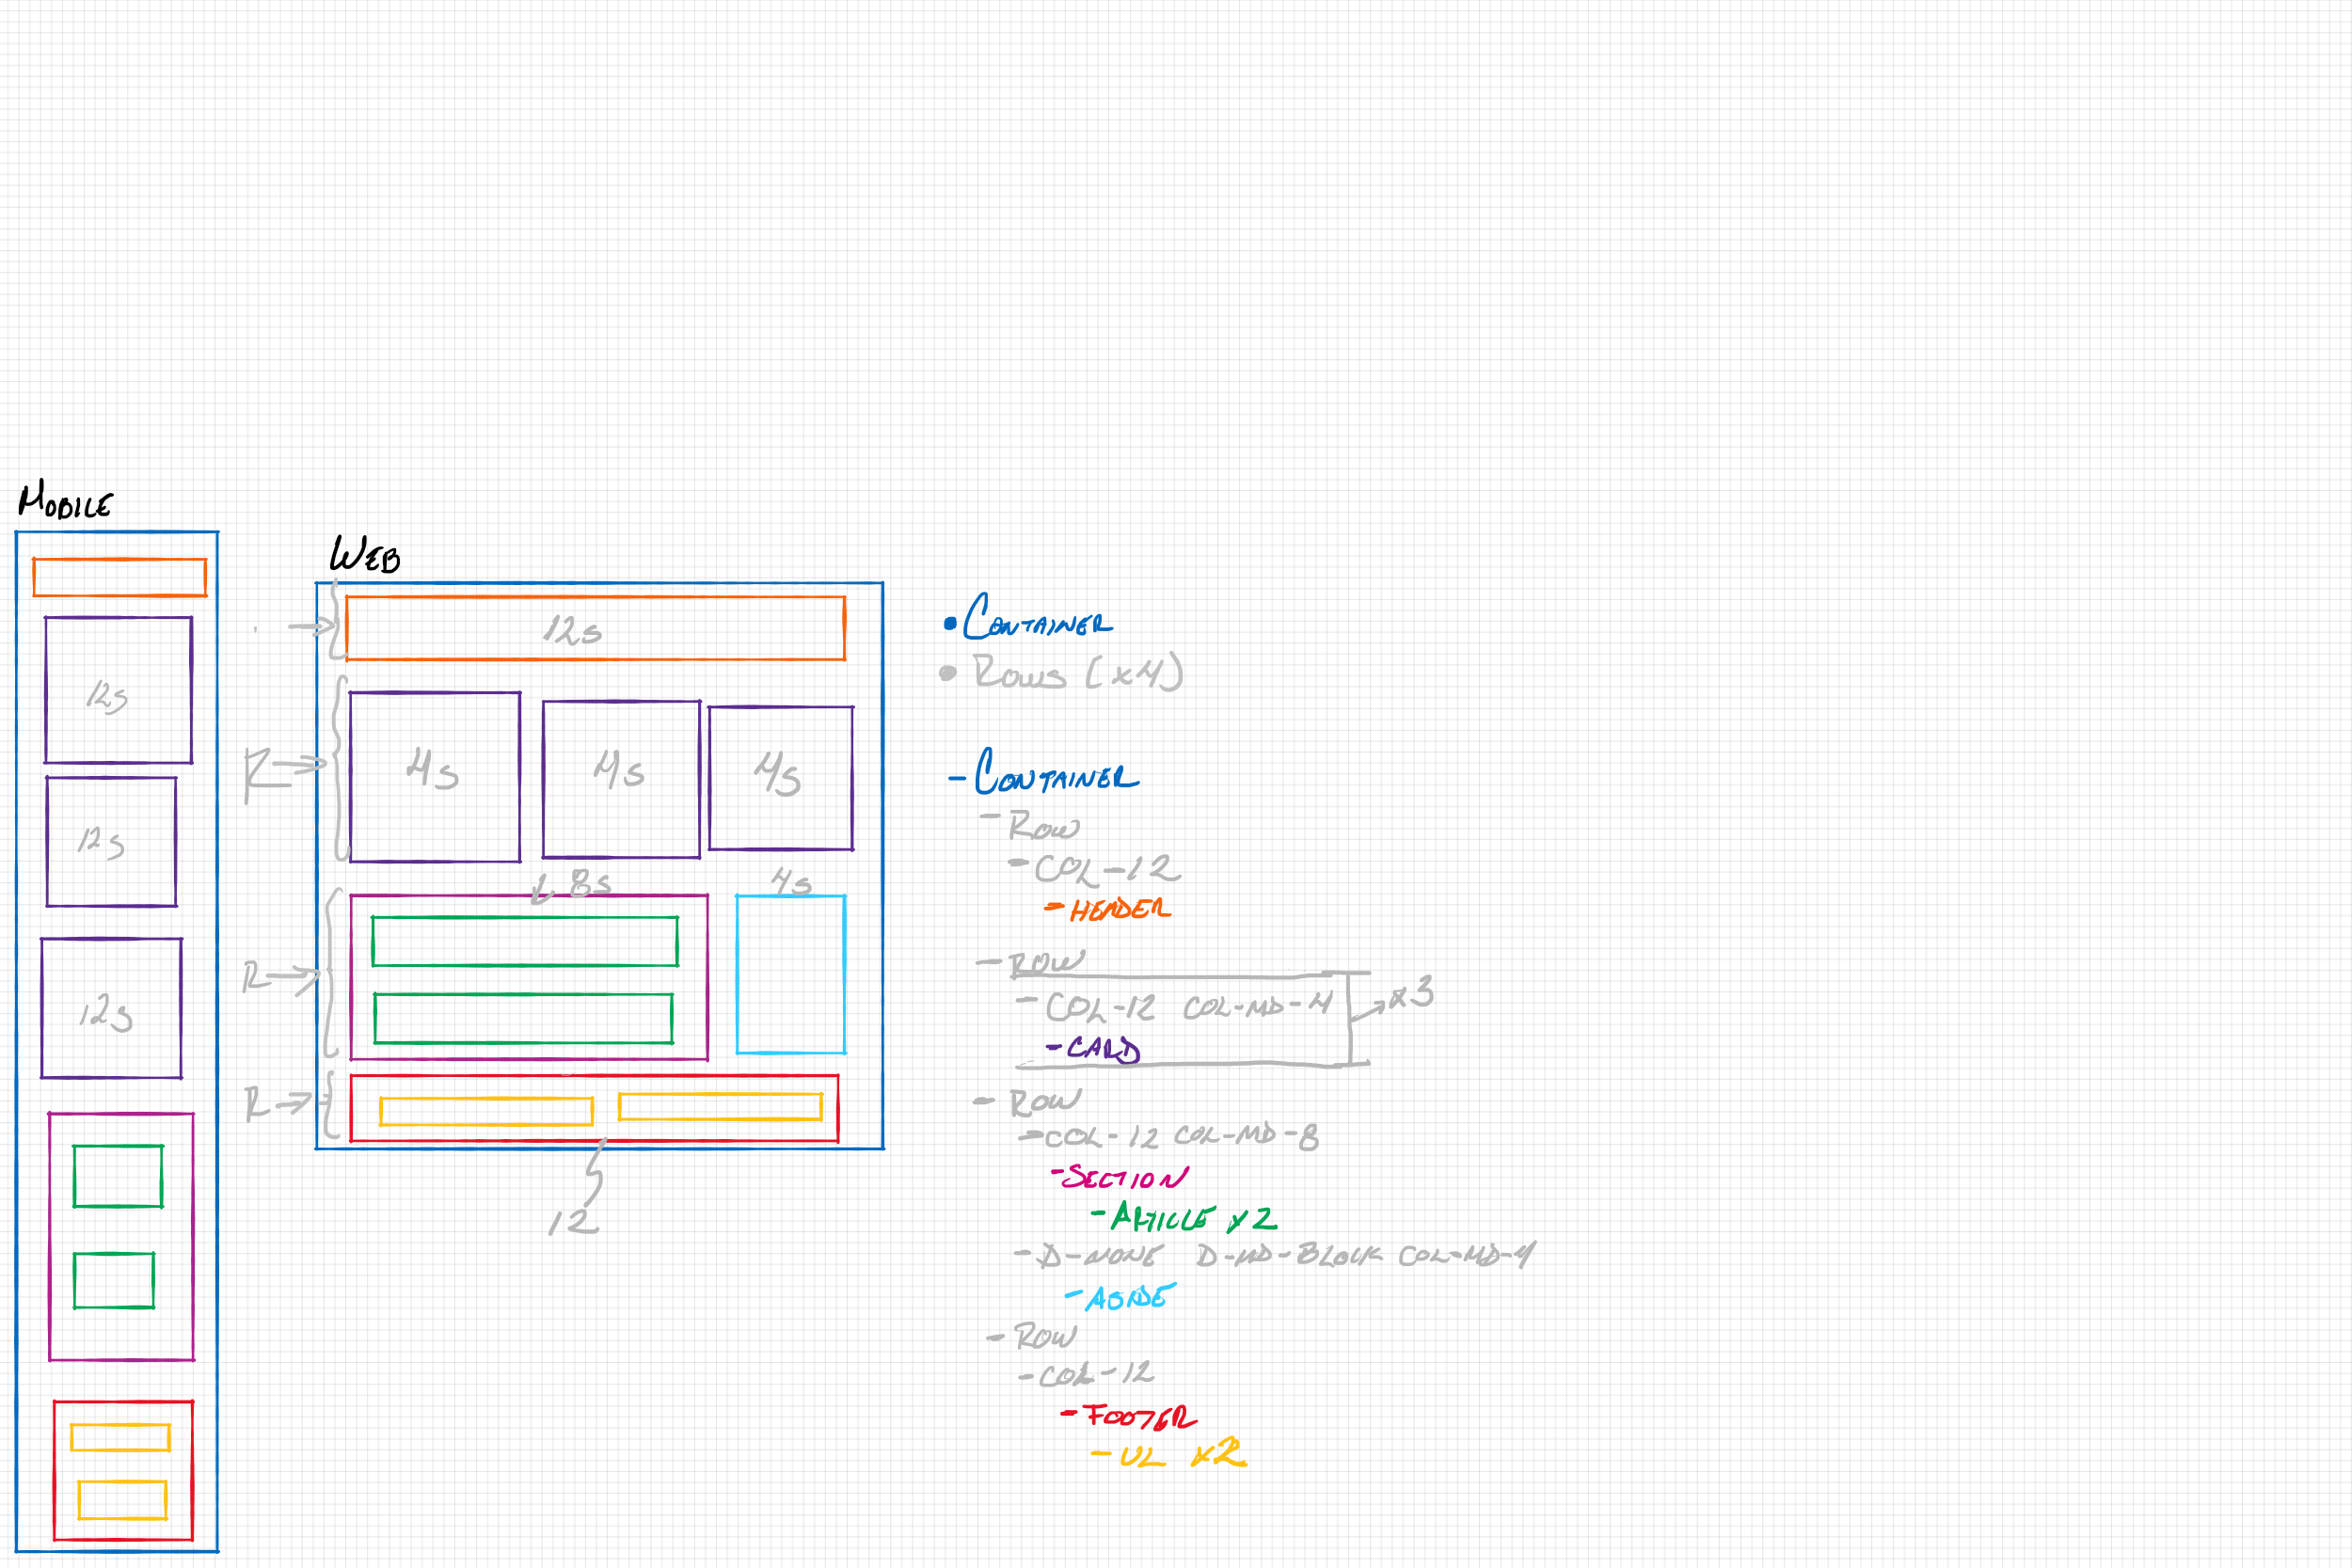 MOBILE
12s
12s
12s
WEB
12s
R
4s
4s
4s
8s
4s
R
R
12
CONTAINER
ROWS (x4)
- CONTAINER
- ROW
- COL-12
- HEADER
- ROW
- COL-12 COL-MD-4
x3
- CARD
- ROW
- COL-12 COL-MD-8
- SECTION
- ARTICLE x2
- D-NONE D-MD-BLOCK COL-MD-4
- ASIDE
- ROW
- COL-12
- FOOTER
- UL x2